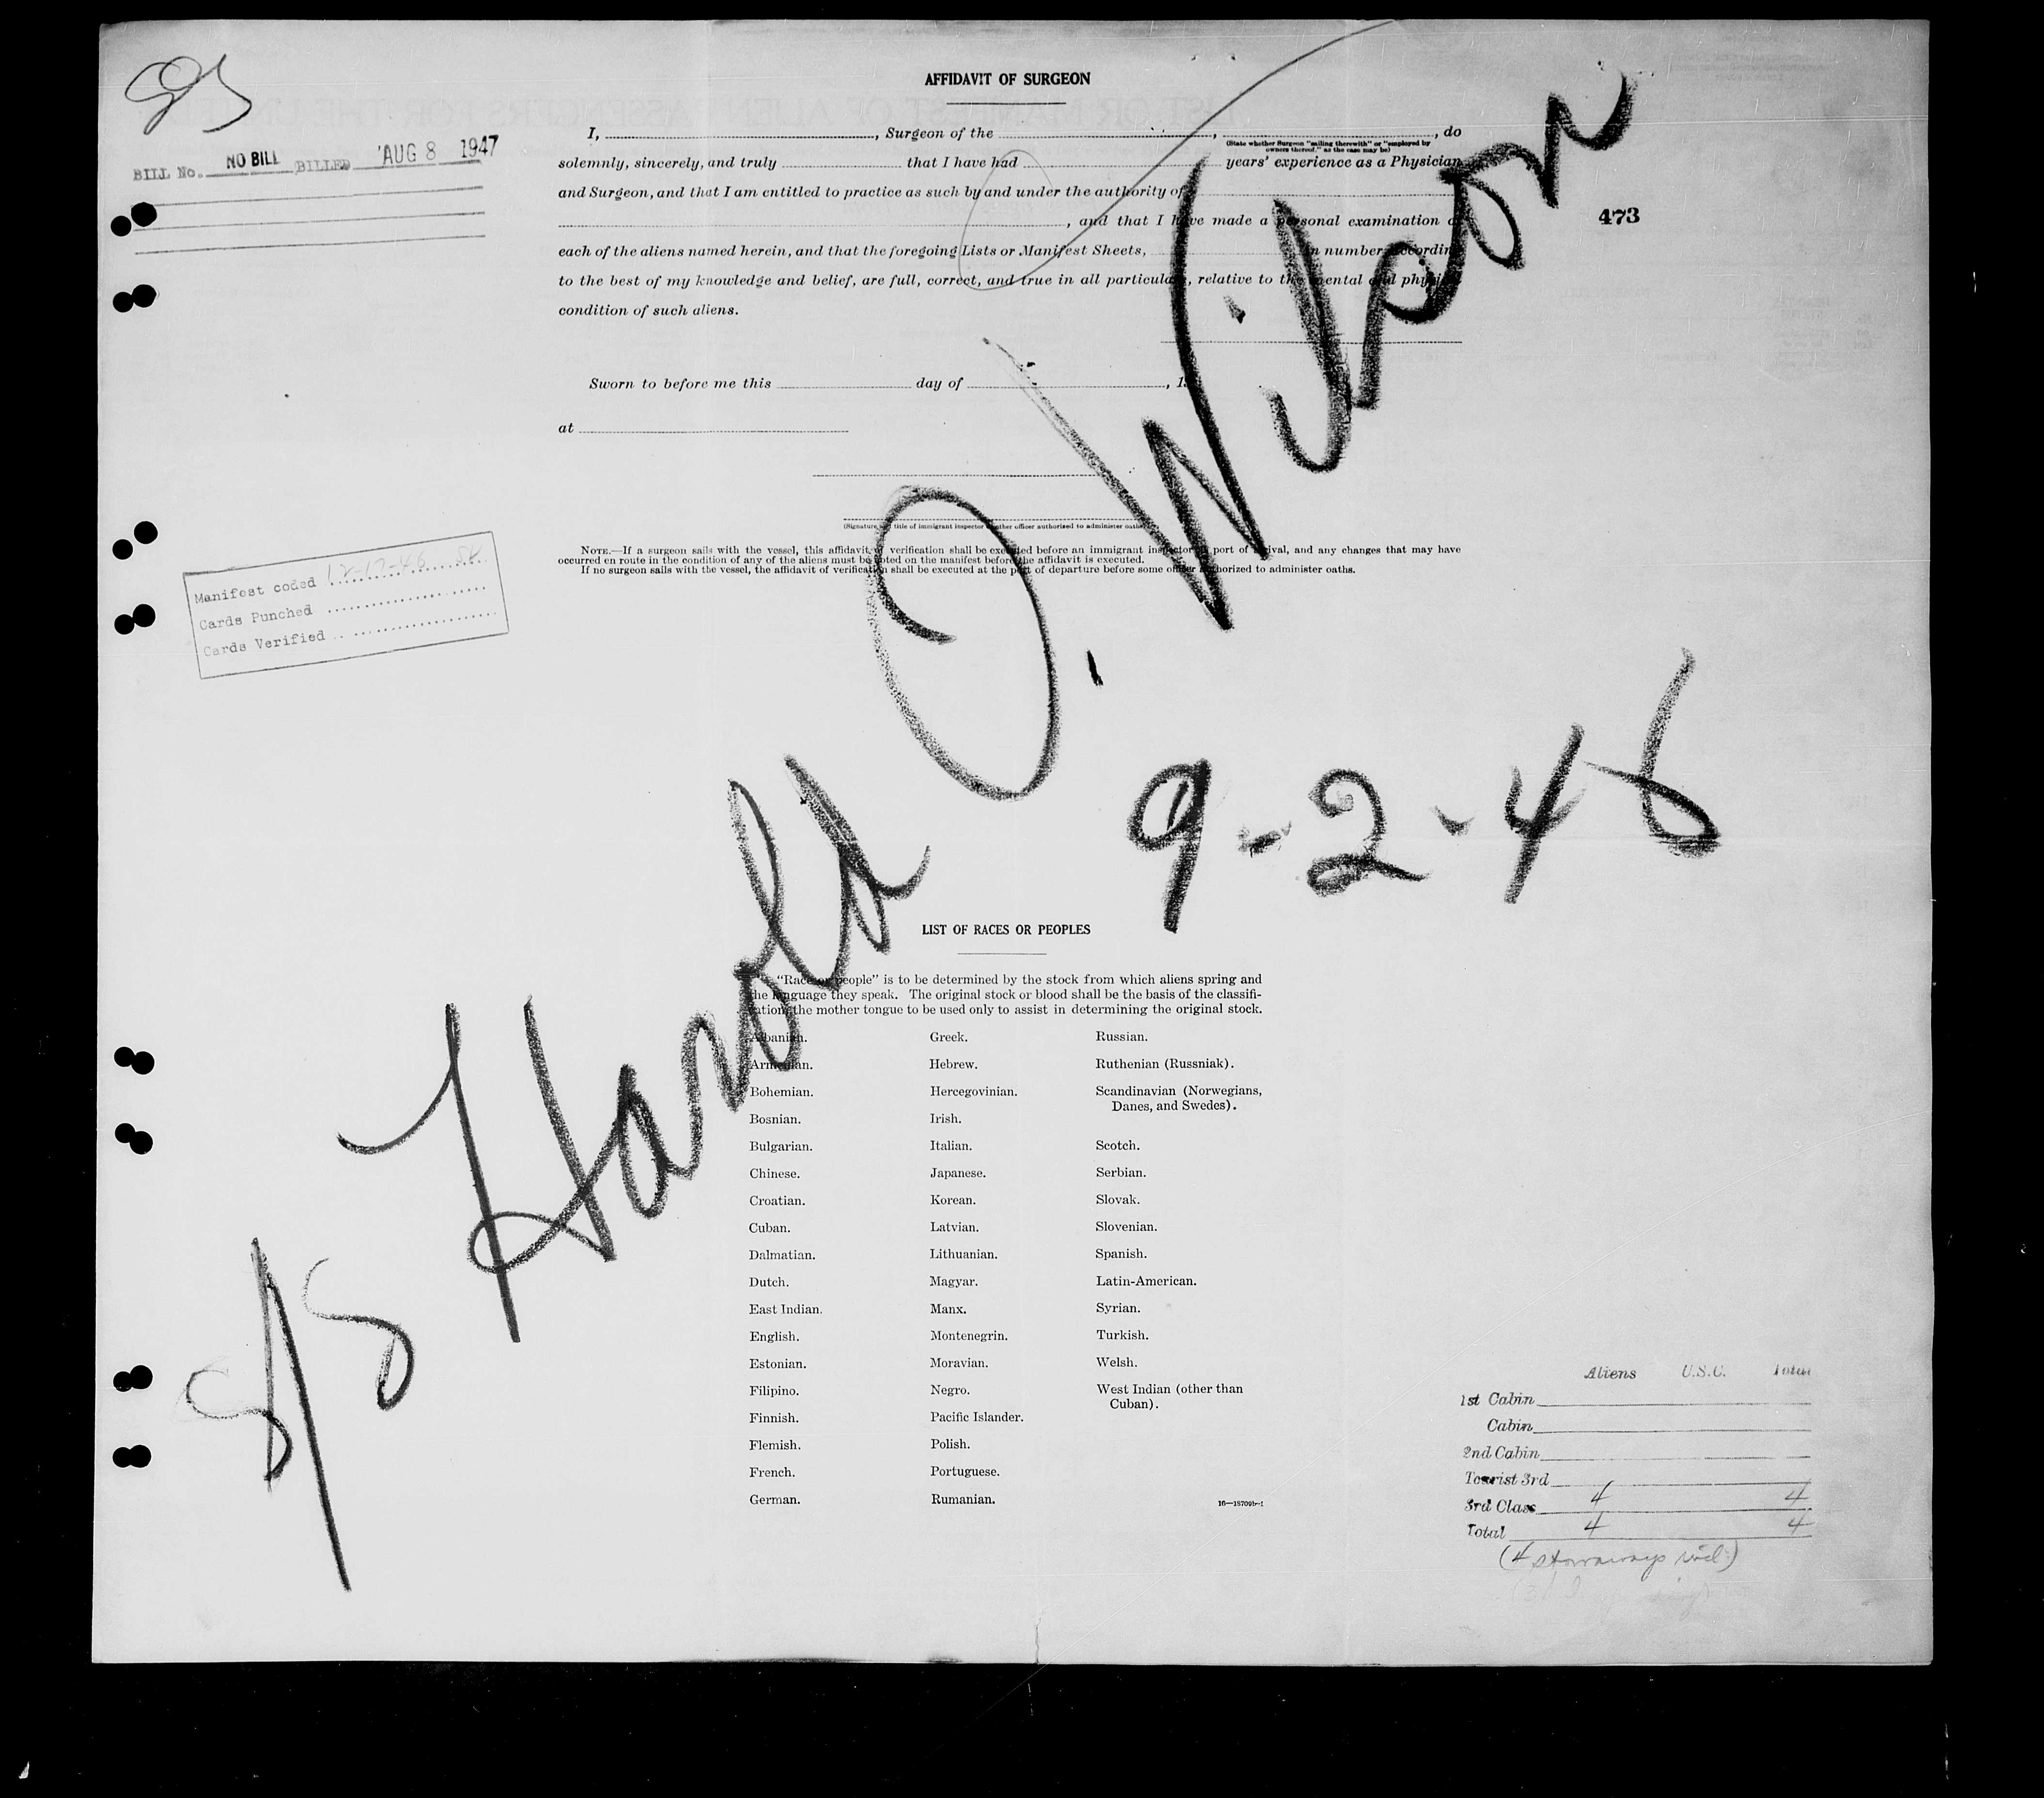 AFFIDAVIT OF SURGEON
I, , Surgeon of the , , do
(State whether Surgeon "sailing therewith" or "employed by
owners thereof," as the case may be)
solemnly, sincerely, and truly that I have had years' experience as a Physician
and Surgeon, and that I am entitled to practice as such by and under the authority of
, and that I have made a personal examination of
each of the aliens named herein, and that the foregoing Lists or Manifest Sheets, in number, according
to the best of my knowledge and belief, are full, correct, and true in all particulars, relative to the mental and physical
condition of such aliens.
Sworn to before me this day of , 19
at
(Signature and title of immigrant inspector or other officer authorized to administer oaths)
NOTE.—If a surgeon sails with the vessel, this affidavit of verification shall be executed before an immigrant inspector at port of arrival, and any changes that may have
occurred en route in the condition of any of the aliens must be noted on the manifest before the affidavit is executed.
If no surgeon sails with the vessel, the affidavit of verification shall be executed at the port of departure before some officer authorized to administer oaths.
BILL No. NO BILL BILLED AUG 8 1947
473
Manifest coded 12-17-46
Cards Punched
Cards Verified
S/S Harold O. Wilson
9-2-46
LIST OF RACES OR PEOPLES
"Race or people" is to be determined by the stock from which aliens spring and
the language they speak. The original stock or blood shall be the basis of the classifi-
cation, the mother tongue to be used only to assist in determining the original stock.
Albanian.
Armenian.
Bohemian.
Bosnian.
Bulgarian.
Chinese.
Croatian.
Cuban.
Dalmatian.
Dutch.
East Indian.
English.
Estonian.
Filipino.
Finnish.
Flemish.
French.
German.
Greek.
Hebrew.
Hercegovinian.
Irish.
Italian.
Japanese.
Korean.
Latvian.
Lithuanian.
Magyar.
Manx.
Montenegrin.
Moravian.
Negro.
Pacific Islander.
Polish.
Portuguese.
Rumanian.
Russian.
Ruthenian (Russniak).
Scandinavian (Norwegians,
Danes, and Swedes).
Scotch.
Serbian.
Slovak.
Slovenian.
Spanish.
Latin-American.
Syrian.
Turkish.
Welsh.
West Indian (other than
Cuban).
Aliens U.S.C. Total
1st Cabin
Cabin
2nd Cabin
Tourist 3rd
3rd Class 4 4
Total 4 4
(4 stowaways incl.)